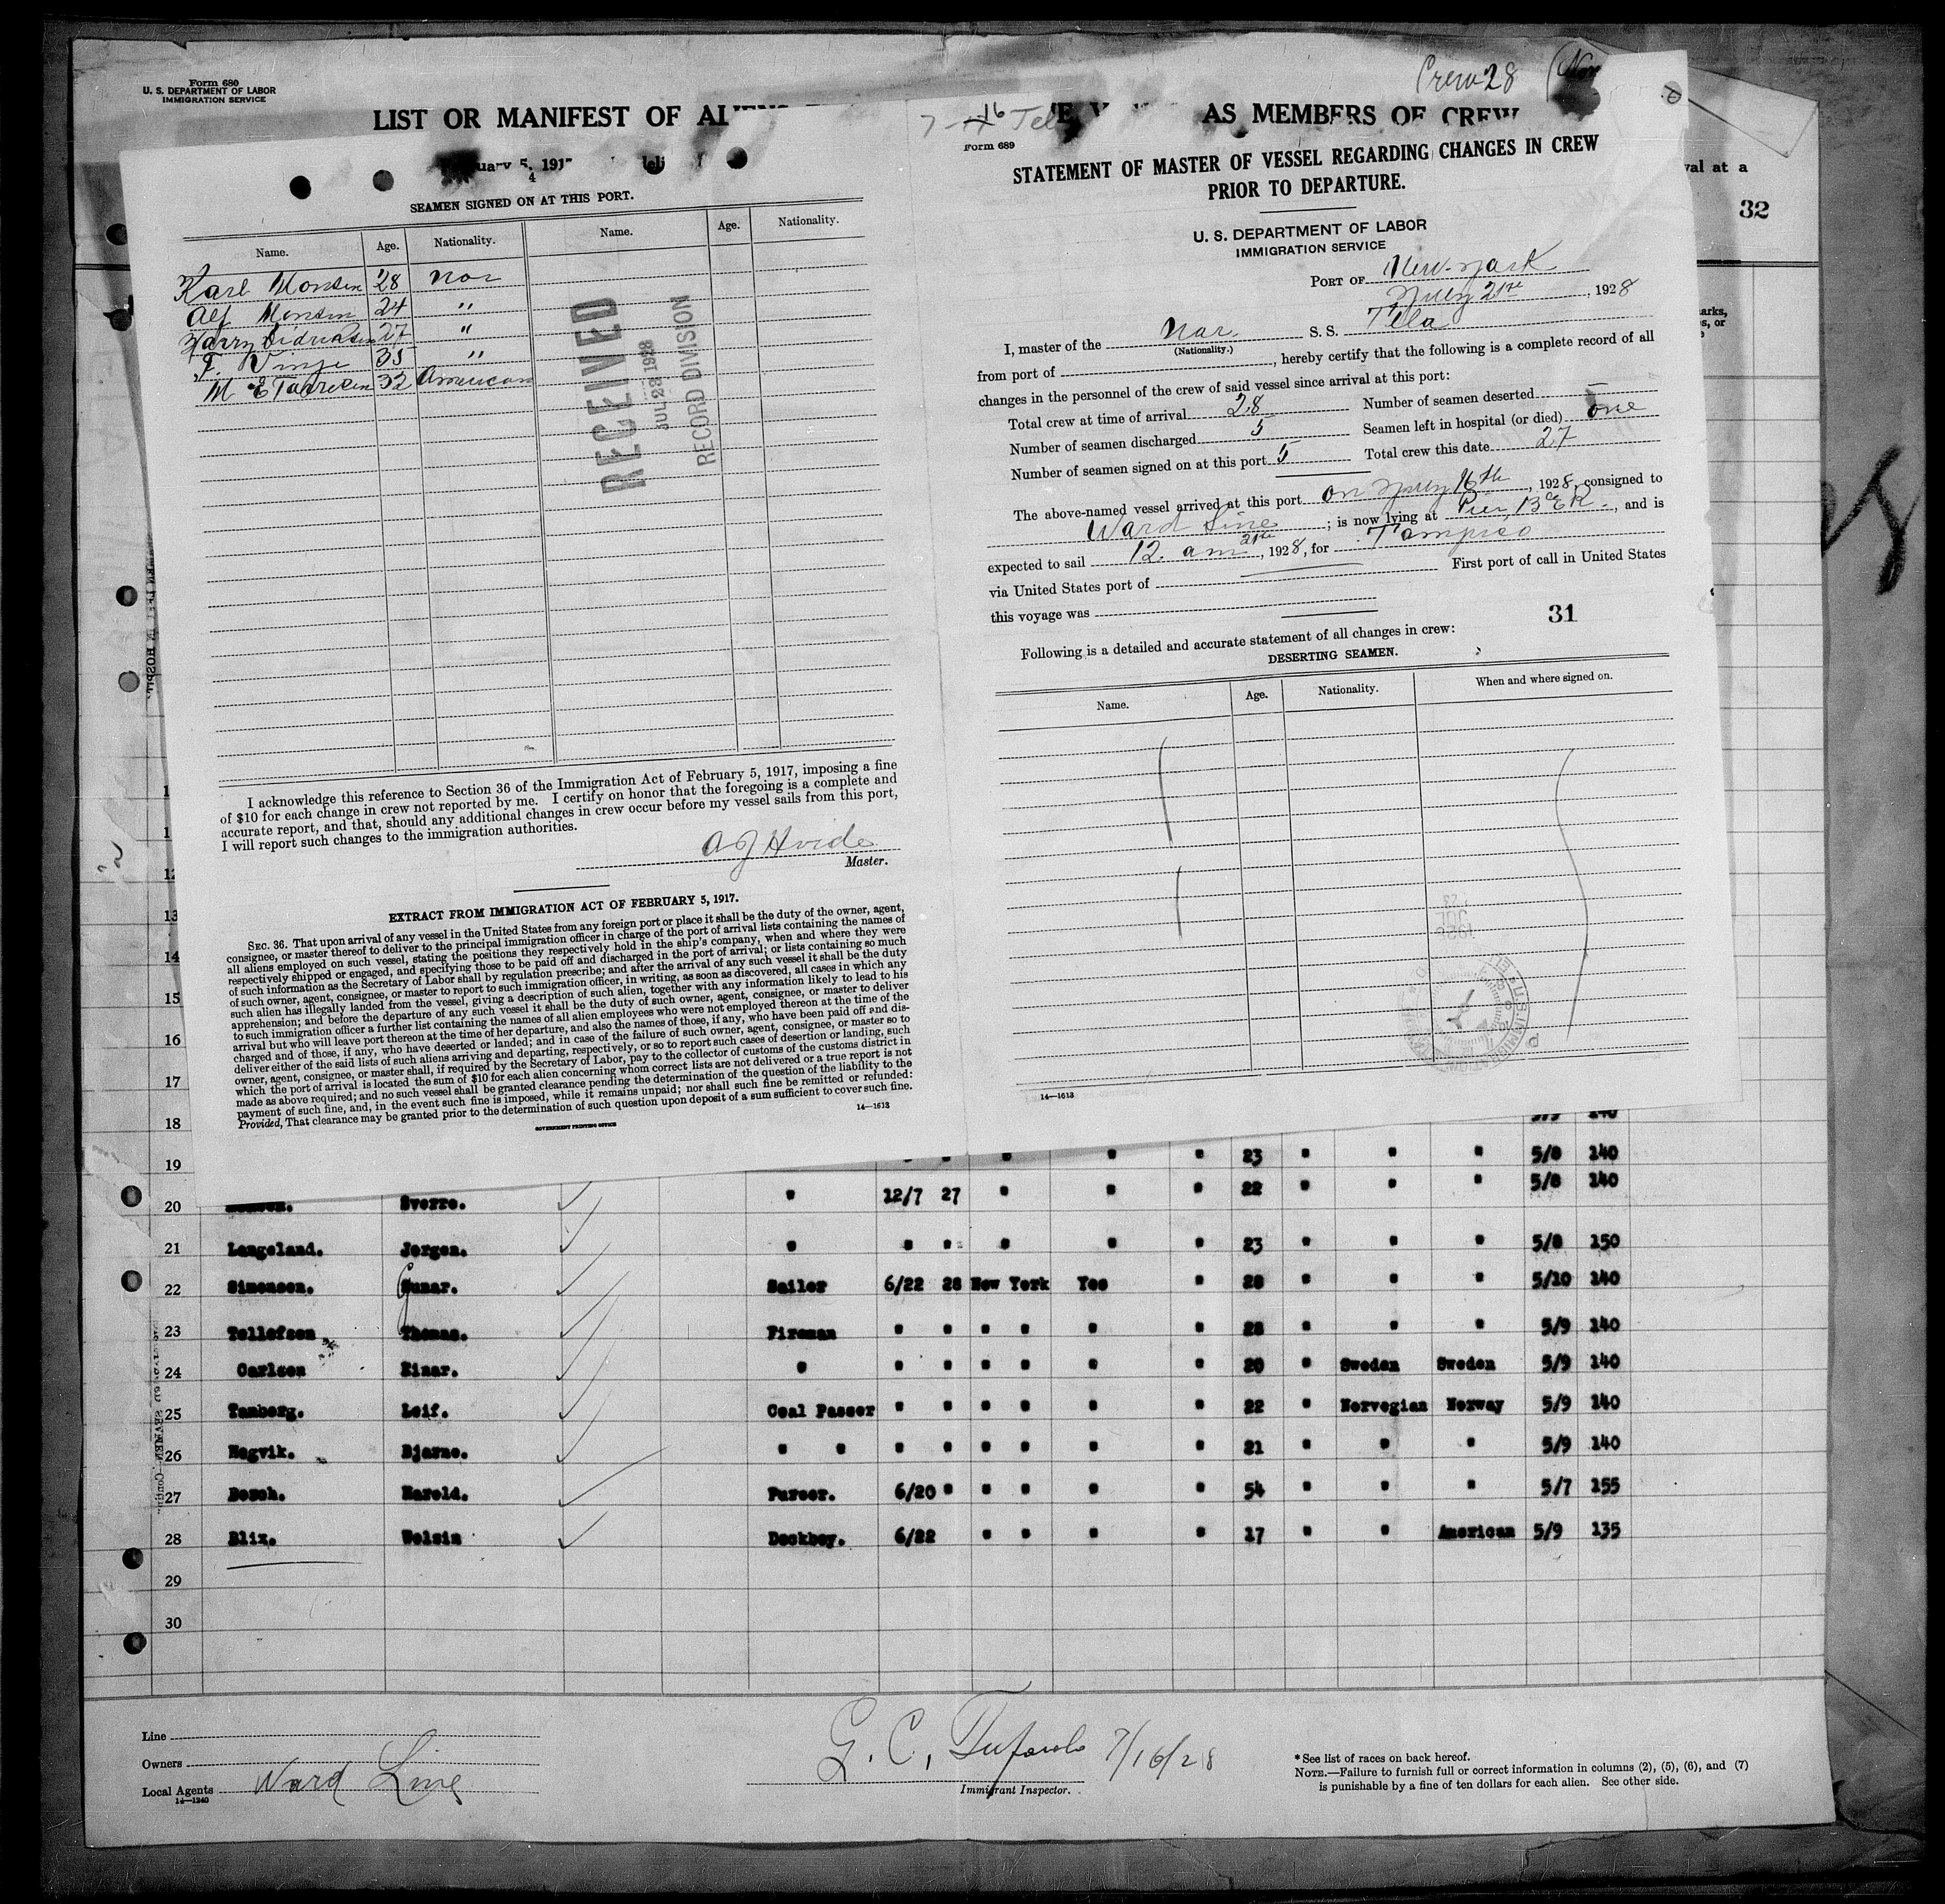 Form 680
U. S. DEPARTMENT OF LABOR
IMMIGRATION SERVICE
LIST OR MANIFEST OF
AS MEMBERS OF CREW
Crew 28
val at a
32
SEAMEN SIGNED ON AT THIS PORT.
Name. Age. Nationality. Name. Age. Nationality.
Karl Monsen 28 Nor
Alf Monsen 24 "
Harry 27 "
F. Vinje 35 "
M E 32 American
RECEIVED
JUL 23 1928
RECORD DIVISION
I acknowledge this reference to Section 36 of the Immigration Act of February 5, 1917, imposing a fine
of $10 for each change in crew not reported by me. I certify on honor that the foregoing is a complete and
accurate report, and that, should any additional changes in crew occur before my vessel sails from this port,
I will report such changes to the immigration authorities.
Master.
EXTRACT FROM IMMIGRATION ACT OF FEBRUARY 5, 1917.
SEC. 36. That upon arrival of any vessel in the United States from any foreign port or place it shall be the duty of the owner, agent,
consignee, or master thereof to deliver to the principal immigration officer in charge of the port of arrival lists containing the names of
all aliens employed on such vessel, stating the positions they respectively hold in the ship's company, when and where they were
respectively shipped or engaged, and specifying those to be paid off and discharged in the port of arrival; or lists containing so much
of such information as the Secretary of Labor shall by regulation prescribe; and after the arrival of any such vessel it shall be the duty
of such owner, agent, consignee, or master to report to such immigration officer, in writing, as soon as discovered, all cases in which any
such alien has illegally landed from the vessel, giving a description of such alien, together with any information likely to lead to his
apprehension; and before the departure of any such vessel it shall be the duty of such owner, agent, consignee, or master to deliver
to such immigration officer a further list containing the names of all alien employees who were not employed thereon at the time of the
arrival but who will leave port thereon at the time of her departure, and also the names of those, if any, who have been paid off and dis-
charged and of those, if any, who have deserted or landed; and in case of the failure of such owner, agent, consignee, or master so to
deliver either of the said lists of such aliens arriving and departing, respectively, or so to report such cases of desertion or landing, such
owner, agent, consignee, or master shall, if required by the Secretary of Labor, pay to the collector of customs of the customs district in
which the port of arrival is located the sum of $10 for each alien concerning whom correct lists are not delivered or a true report is not
made as above required; and no such vessel shall be granted clearance pending the determination of the question of the liability to the
payment of such fine, and, in the event such fine is imposed, while it remains unpaid; nor shall such fine be remitted or refunded:
Provided, That clearance may be granted prior to the determination of such question upon deposit of a sum sufficient to cover such fine.
14—1613
GOVERNMENT PRINTING OFFICE
Form 689
STATEMENT OF MASTER OF VESSEL REGARDING CHANGES IN CREW
PRIOR TO DEPARTURE.
U. S. DEPARTMENT OF LABOR
IMMIGRATION SERVICE
PORT OF New York
July 21st, 1928
I, master of the Nor. S. S. Tela
(Nationality.)
from port of , hereby certify that the following is a complete record of all
changes in the personnel of the crew of said vessel since arrival at this port:
Total crew at time of arrival 28 Number of seamen deserted —
Number of seamen discharged 5 Seamen left in hospital (or died) one
Number of seamen signed on at this port 5 Total crew this date 27
The above-named vessel arrived at this port on July 16th, 1928, consigned to
Ward Line; is now lying at Pier 13 E R., and is
expected to sail 12. am 21st, 1928, for Tampico
via United States port of First port of call in United States
this voyage was
31
Following is a detailed and accurate statement of all changes in crew:
DESERTING SEAMEN.
Name. Age. Nationality. When and where signed on.
14—1613
18 140
19 " " 23 " " " 5/8 140
20 Sverre. " 12/7 27 " " " 22 " " " 5/8 140
21 Langeland. Jorgen. " " " " " " 23 " " " 5/8 150
22 Simonsen. Gunar. Sailor 6/22 28 New York Yes " 28 " " " 5/10 140
23 Tellefsen Thomas. Fireman " " " " " " 28 " " " 5/9 140
24 Carlsen Einar. " " " " " " " 20 " Sweden Sweden 5/9 140
25 Tamberg. Leif. Coal Passer " " " " " " 22 " Norvegian Norway 5/9 140
26 Hagvik. Bjarne. " " " " " " " " 21 " " " 5/9 140
27 Bosch. Harold. Purser. 6/20 " " " " " 54 " " " 5/7 155
28 Blix. Welsin Deckboy. 6/22 " " " " 17 " " American 5/9 135
29
30
Line
Owners
Local Agents Ward Line
14—1240
G. C. 7/16/28
Immigrant Inspector.
* See list of races on back hereof.
NOTE.—Failure to furnish full or correct information in columns (2), (5), (6), and (7)
is punishable by a fine of ten dollars for each alien. See other side.